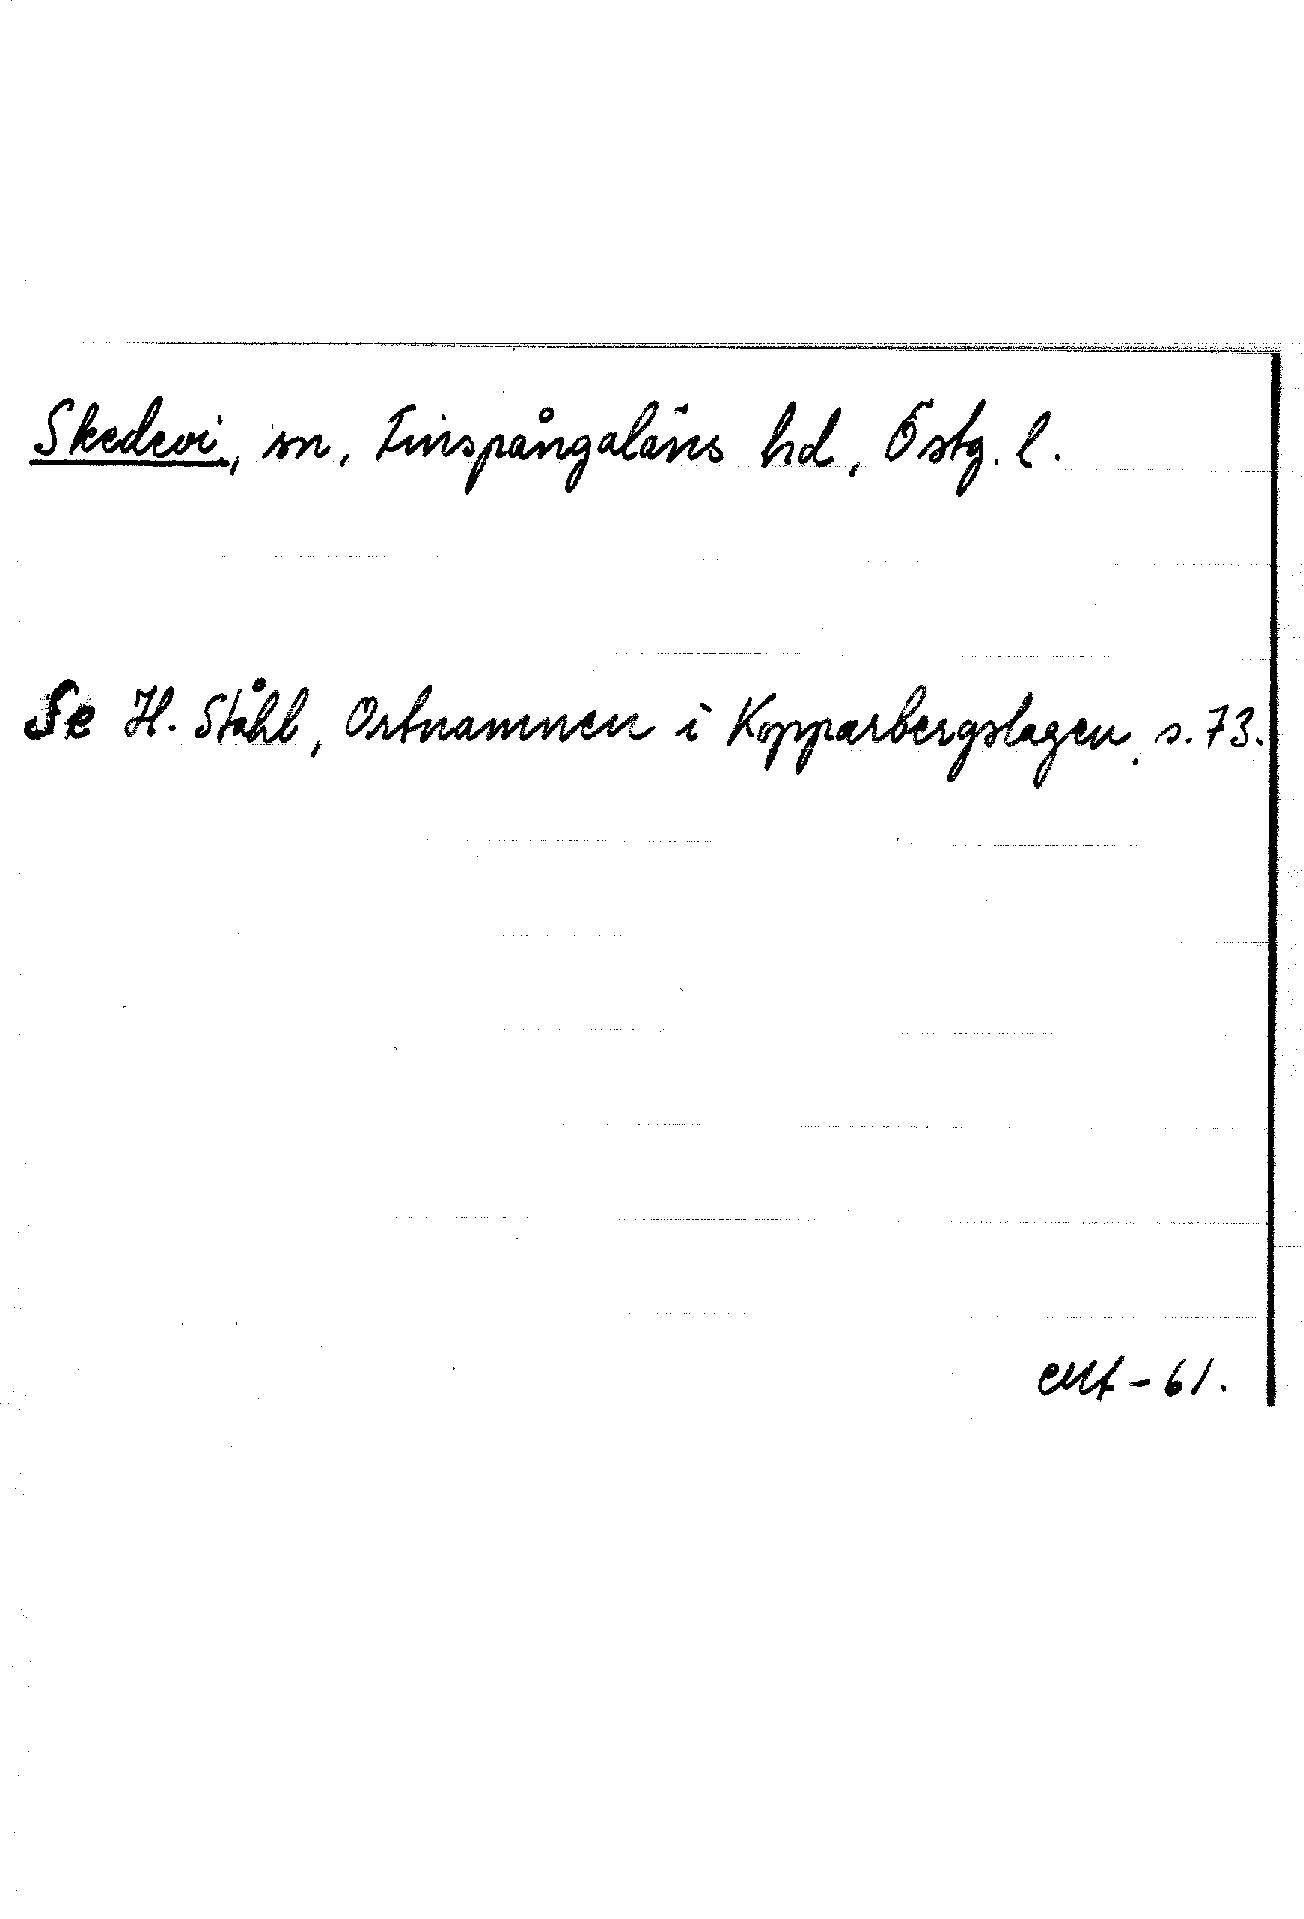 Skedevi, sn, Finspångaläns hd, Östg. l.
Se H. Ståhl, Ortnamnen i Kopparbergslagen, s. 73.
-61.